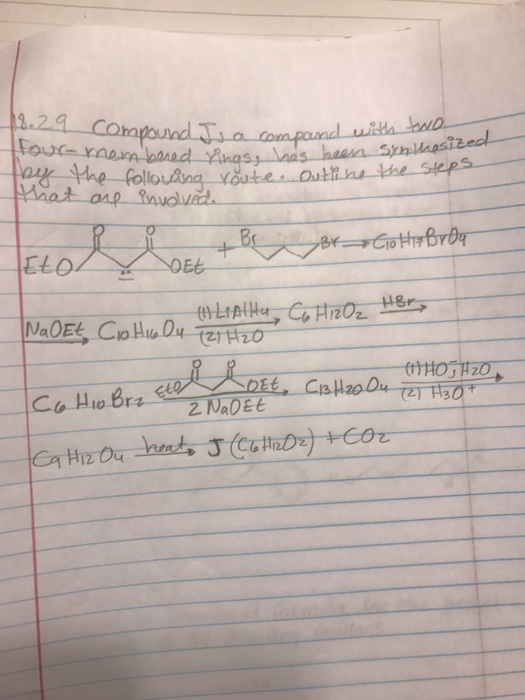 18.29 Compound J, a compound with two
four-membered rings, has been synthesized
by the following route. Outline the steps
that are involved.
O O
EtO OEt + Br Br → C10H17BrO4
NaOEt → C10H16O4 (1) LiAlH4 (2) H2O → C6H12O2 HBr →
C6H10Br2 EtO O O OEt, 2 NaOEt → C13H20O4 (1) HO⁻, H2O (2) H3O+ →
C9H12O4 heat → J (C6H12O2) + CO2